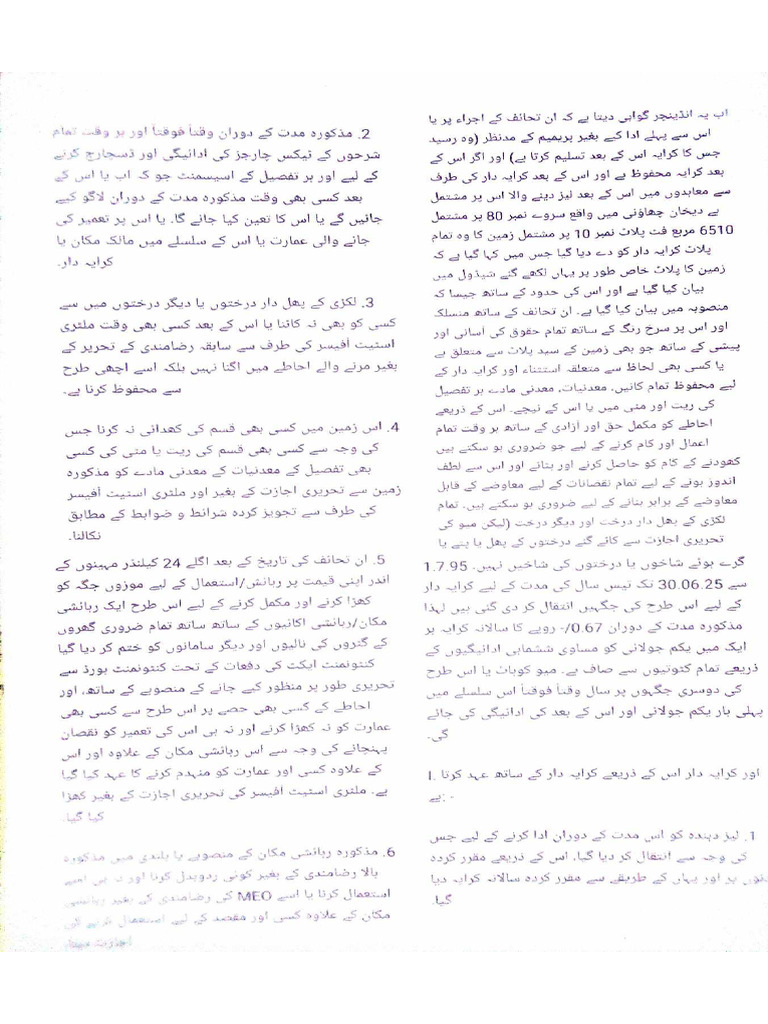 اب یہ انڈینچر گواہی دیتا ہے کہ ان تحائف کے اجراء پر یا
اس سے پہلے ادا کیے بغیر پریمیم کے مدنظر (وہ رسید
جس کا کرایہ اس کے بعد تسلیم کرتا ہے) اور اگر اس کے
بعد کرایہ محفوظ ہے اور اس کے بعد کرایہ دار کی طرف
سے معاہدوں میں اس کے بعد لیز دینے والا اس پر مشتمل
ہے دیخان چھاؤنی میں واقع سروے نمبر 80 پر مشتمل
6510 مربع فٹ پلاٹ نمبر 10 پر مشتمل زمین کا وہ تمام
پلاٹ کرایہ دار کو دے دیا گیا جس میں کہا گیا ہے کہ
زمین کا پلاٹ خاص طور پر یہاں لکھے گئے شیڈول میں
بیان کیا گیا ہے اور اس کی حدود کے ساتھ جیسا کہ
منصوبہ میں بیان کیا گیا ہے۔ ان تحائف کے ساتھ منسلک
اور اس پر سرخ رنگ کے ساتھ تمام حقوق کی آسانی اور
پیشی کے ساتھ جو بھی زمین کے سید پلاٹ سے متعلق ہے
یا کسی بھی لحاظ سے متعلقہ استثناء اور کرایہ دار کے
لیے محفوظ تمام کانیں، معدنیات، معدنی مادے ہر تفصیل
کی ریت اور مٹی میں یا اس کے نیچے۔ اس کے ذریعے
احاطے کو مکمل حق اور آزادی کے ساتھ ہر وقت تمام
اعمال اور کام کرنے کے لیے جو ضروری ہو سکتے ہیں
کھودنے کے کام کو حاصل کرنے اور بنانے اور اس سے لطف
اندوز ہونے کے لیے تمام نقصانات کے لیے معاوضے کے قابل
معاوضے کے برابر بنانے کے لیے ضروری ہو سکتے ہیں۔ تمام
لکڑی کے پھل دار درخت اور دیگر درخت (لیکن میو کی
تحریری اجازت سے کاٹے گئے درختوں کے پھل یا پتے یا
گرے ہوئے شاخوں یا درختوں کی شاخیں نہیں۔ 1.7.95
سے 30.06.25 تک تیس سال کی مدت کے لیے کرایہ دار
کے لیے اس طرح کی جگہیں انتقال کر دی گئی ہیں لہذا
مذکورہ مدت کے دوران 0.67/- روپے کا سالانہ کرایہ ہر
ایک میں یکم جولائی کو مساوی ششماہی ادائیگیوں کے
ذریعے تمام کٹوتیوں سے صاف ہے۔ میو کوہاٹ یا اس طرح
کی دوسری جگہوں پر سال وقتاً فوقتاً اس سلسلے میں
پہلی بار یکم جولائی اور اس کے بعد کی ادائیگی کی جائے
گی۔
I. اور کرایہ دار اس کے ذریعے کرایہ دار کے ساتھ عہد کرتا
ہے: -
1. لیز دہندہ کو اس مدت کے دوران ادا کرنے کے لیے جس
کی وجہ سے انتقال کر دیا گیا، اس کے ذریعے مقرر کردہ
پر اور یہاں کے طریقے سے مقرر کردہ سالانہ کرایہ دیا
گیا۔
2. مذکورہ مدت کے دوران وقتاً فوقتاً اور ہر وقت تمام
شرحوں کے ٹیکس چارجز کی ادائیگی اور ڈسچارج کرنے
کے لیے اور ہر تفصیل کے اسیسمنٹ جو کہ اب یا اس کے
بعد کسی بھی وقت مذکورہ مدت کے دوران لاگو کیے
جائیں گے یا اس کا تعین کیا جائے گا۔ یا اس پر تعمیر کی
جانے والی عمارت یا اس کے سلسلے میں مالک مکان یا
کرایہ دار۔
3. لکڑی کے پھل دار درختوں یا دیگر درختوں میں سے
کسی کو بھی نہ کاٹنا یا اس کے بعد کسی بھی وقت ملٹری
اسٹیٹ آفیسر کی طرف سے سابقہ رضامندی کے تحریر کے
بغیر مرنے والے احاطے میں اگنا نہیں بلکہ اسے اچھی طرح
سے محفوظ کرنا ہے۔
4. اس زمین میں کسی بھی قسم کی کھدائی نہ کرنا جس
کی وجہ سے کسی بھی قسم کی ریت یا مٹی کی کسی
بھی تفصیل کے معدنیات کے معدنی مادے کو مذکورہ
زمین سے تحریری اجازت کے بغیر اور ملٹری اسٹیٹ آفیسر
کی طرف سے تجویز کردہ شرائط و ضوابط کے مطابق
نکالنا۔
5. ان تحائف کی تاریخ کے بعد اگلے 24 کیلنڈر مہینوں کے
اندر اپنی قیمت پر رہائش/استعمال کے لیے موزوں جگہ کو
کھڑا کرنے اور مکمل کرنے کے لیے اس طرح ایک رہائشی
مکان/رہائشی اکائیوں کے ساتھ ساتھ تمام ضروری گھروں
کے گٹروں کی نالیوں اور دیگر سامانوں کو ختم کر دیا گیا
کنٹونمنٹ ایکٹ کی دفعات کے تحت کنٹونمنٹ بورڈ سے
تحریری طور پر منظور کیے جانے کے منصوبے کے ساتھ، اور
احاطے کے کسی بھی حصے پر اس طرح سے کسی بھی
عمارت کو نہ کھڑا کرنے اور نہ ہی اس کی تعمیر کو نقصان
پہنچانے کی وجہ سے اس رہائشی مکان کے علاوہ اور اس
کے علاوہ کسی اور عمارت کو منہدم کرنے کا عہد کیا گیا
ہے۔ ملٹری اسٹیٹ آفیسر کی تحریری اجازت کے بغیر کھڑا
کیا گیا۔
6. مذکورہ رہائشی مکان کے منصوبے یا بلندی میں مذکورہ
بالا رضامندی کے بغیر کوئی ردوبدل کرنا اور نہ ہی اسے
استعمال کرنا یا اسے MEO کی رضامندی کے بغیر رہائشی
مکان کے علاوہ کسی اور مقصد کے لیے استعمال کرنے کی
اجازت